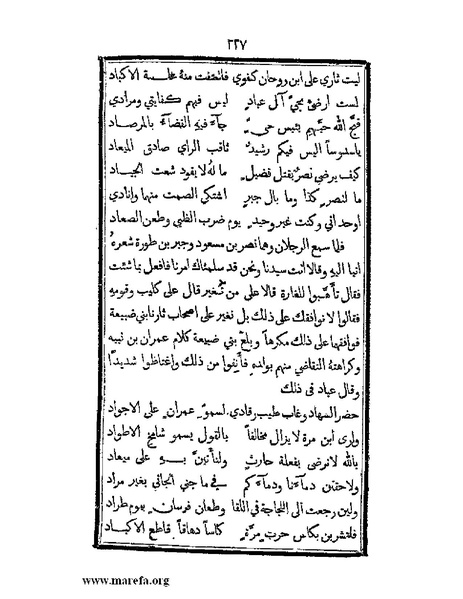 ٢٢٧
ليت ثاري على ابن روحان كفوي فاشتفت منهُ مخلسة الاكباد
لست ارضى بحيّ آل عبادٍ ليس فيهم كفايتي ومرادي
قبح الله حيهم بئيس حيٍّ جآءَ فيهِ القضآءُ بالمرصاد
يالموسا اليس فيكم رشيدٌ ثاقب الراي صادق الميعاد
كيف يرضى نصرٌ بقتل فضيلٍ ما لهُ لا يقود شعث الجياد
ما لنصرٍ كذا وما بال جبرٍ اشتكي الصمت منهما وانادي
اوحداني وكنت غير وحيدٍ يوم ضرب الظبي وطعن الصعاد
فلما سمع الرجلان وهما نصر بن مسعود وجبر بن طورة شعرهُ
اتيا اليهِ وقالا انت سيدنا ونحن قد سلمناك امرنا فافعل ما شئت
فقال تأهبوا للغارة قالا على من تُغير قال على كليب وقومهِ
فقالوا لا نوافقك على ذلك بل نغير على اصحاب ثارنا بني ضبيعة
فوافقها على ذلك مكرهاً وبلغ بني ضبيعة كلام عمران بن نبيه
وكراهتهُ التقاضي منهم بولدهِ فأَنفوا من ذلك واغتاظوا شديدًا
وقال عباد في ذلك
حضر السهاد وغاب طيب رقادي لسموّ عمرانٍ على الاجواد
وارى ابن مرة لا يزال مخالفاً بالقول يسمو شامخ الاطواد
بالله لا نرضى بفعلة حارثٍ ولنأتينَّ بهِ على ميعاد
ولاحقتن دمآءَنا ودمآءَكم في ما جنى الجاني بغير مراد
ولئن رجعت الى اللجاجة في اللقا وطعان فرسانٍ بيوم طراد
فلتشربن بكاس حربٍ مرةٍ كاساً دهاقاً قاطع الاكباد
www.marefa.org